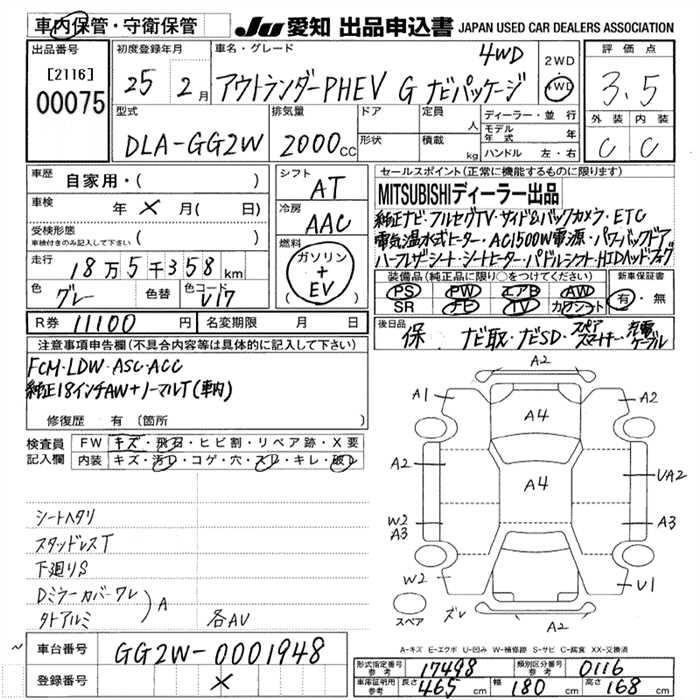 車内保管・守衛保管
JU 愛知 出品申込書 JAPAN USED CAR DEALERS ASSOCIATION
出品番号 初度登録年月 車名・グレード 評価点
[2116]
00075
25 2月
4WD
アウトランダーPHEV G ナビパッケージ
2WD
4WD
3.5
外装 内装
C C
型式 排気量 ドア 定員 ディーラー・並行
DLA-GG2W 2000cc
人
モデル年式 年
形状 積載 kg ハンドル 左・右
車歴 自家用・( )
シフト AT
セールスポイント(正常に機能するものに限ります)
MITSUBISHIディーラー出品
車検 年 × 月 ( )
冷房 AAC
純正ナビ・フルセグTV・サイド&バックカメラ・ETC
受検形態
車検付きのみ記入して下さい ( )
電気温水式ヒーター・AC1500W電源・パワーバックドア
ハーフレザーシート・シートヒーター・パドルシフト・HIDヘッド・フォグ
走行 18万5千358km
燃料 ガソリン
+
EV
( )
装備品(純正品に限り○をつけてください) 新車保証書
PS PW エアB AW
SR ナビ TV カワシート
有・無
色 グレー 色替 色コード U17
R券 11100円 名変期限 月 日
後日品 保 ナビ取・ナビSD・スペアスマートキー・充電ケーブル
注意事項申告欄(不具合内容等は具体的に記入して下さい)
FCM・LDW・ASC・ACC
純正18インチAW+ノーマルT(車内)
修復歴 有 (箇所 )
検査員記入欄
FW キズ・飛石・ヒビ割・リペア跡・X要
内装 キズ・汚レ・コゲ・穴・スレ・キレ・破レ
シートヘタリ
スタッドレスT
下廻りS
Dミラーカバーワレ
タトアルミ
A
各AU
A2
A1
A4
A2
A2
A4
UA2
W2
A3
A3
W2
U1
スペア
ズレ
A2
A-キズ E-エクボ U-凹み W-補修跡 S-サビ C-腐食 XX-交換済
車台番号 GG2W-0001948
登録番号 ×
形式指定番号 参考 17498 類別区分番号 参考 0116
車庫証明用 参考 長さ 465cm 幅 180cm 高さ 168cm